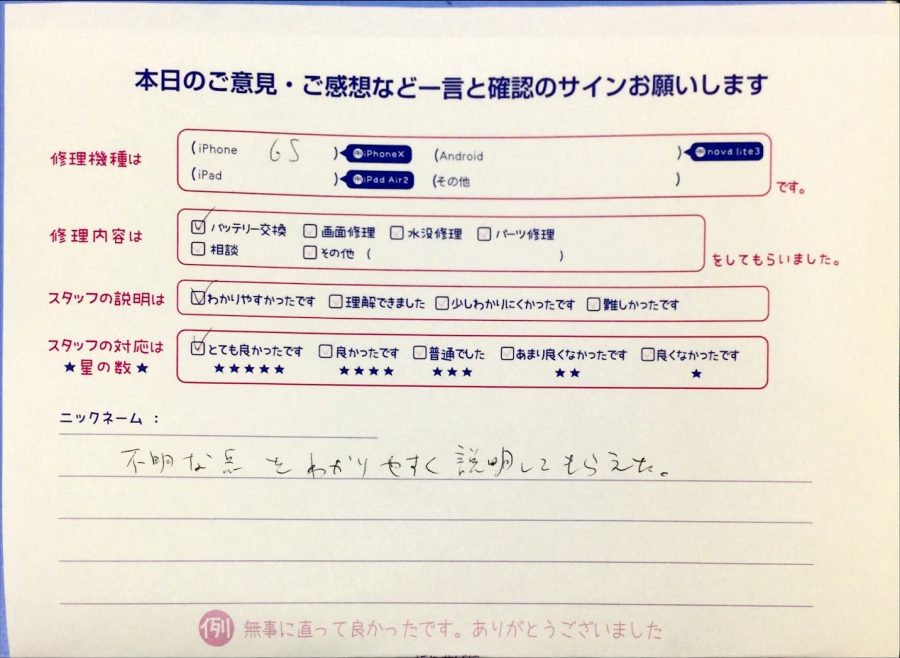 本日のご意見・ご感想など一言と確認のサインお願いします
修理機種は
(iPhone 6S ) 例iPhoneX (Android ) 例nova lite3
(iPad ) 例iPad Air2 (その他 ) です。
修理内容は
バッテリー交換 画面修理 水没修理 パーツ修理
相談 その他 ( ) をしてもらいました。
スタッフの説明は わかりやすかったです 理解できました 少しわかりにくかったです 難しかったです
スタッフの対応は とても良かったです 良かったです 普通でした あまり良くなかったです 良くなかったです
★星の数★ ★★★★★ ★★★★ ★★★ ★★ ★
ニックネーム：
不明な点をわかりやすく説明してもらえた。
例 無事に直って良かったです。ありがとうございました